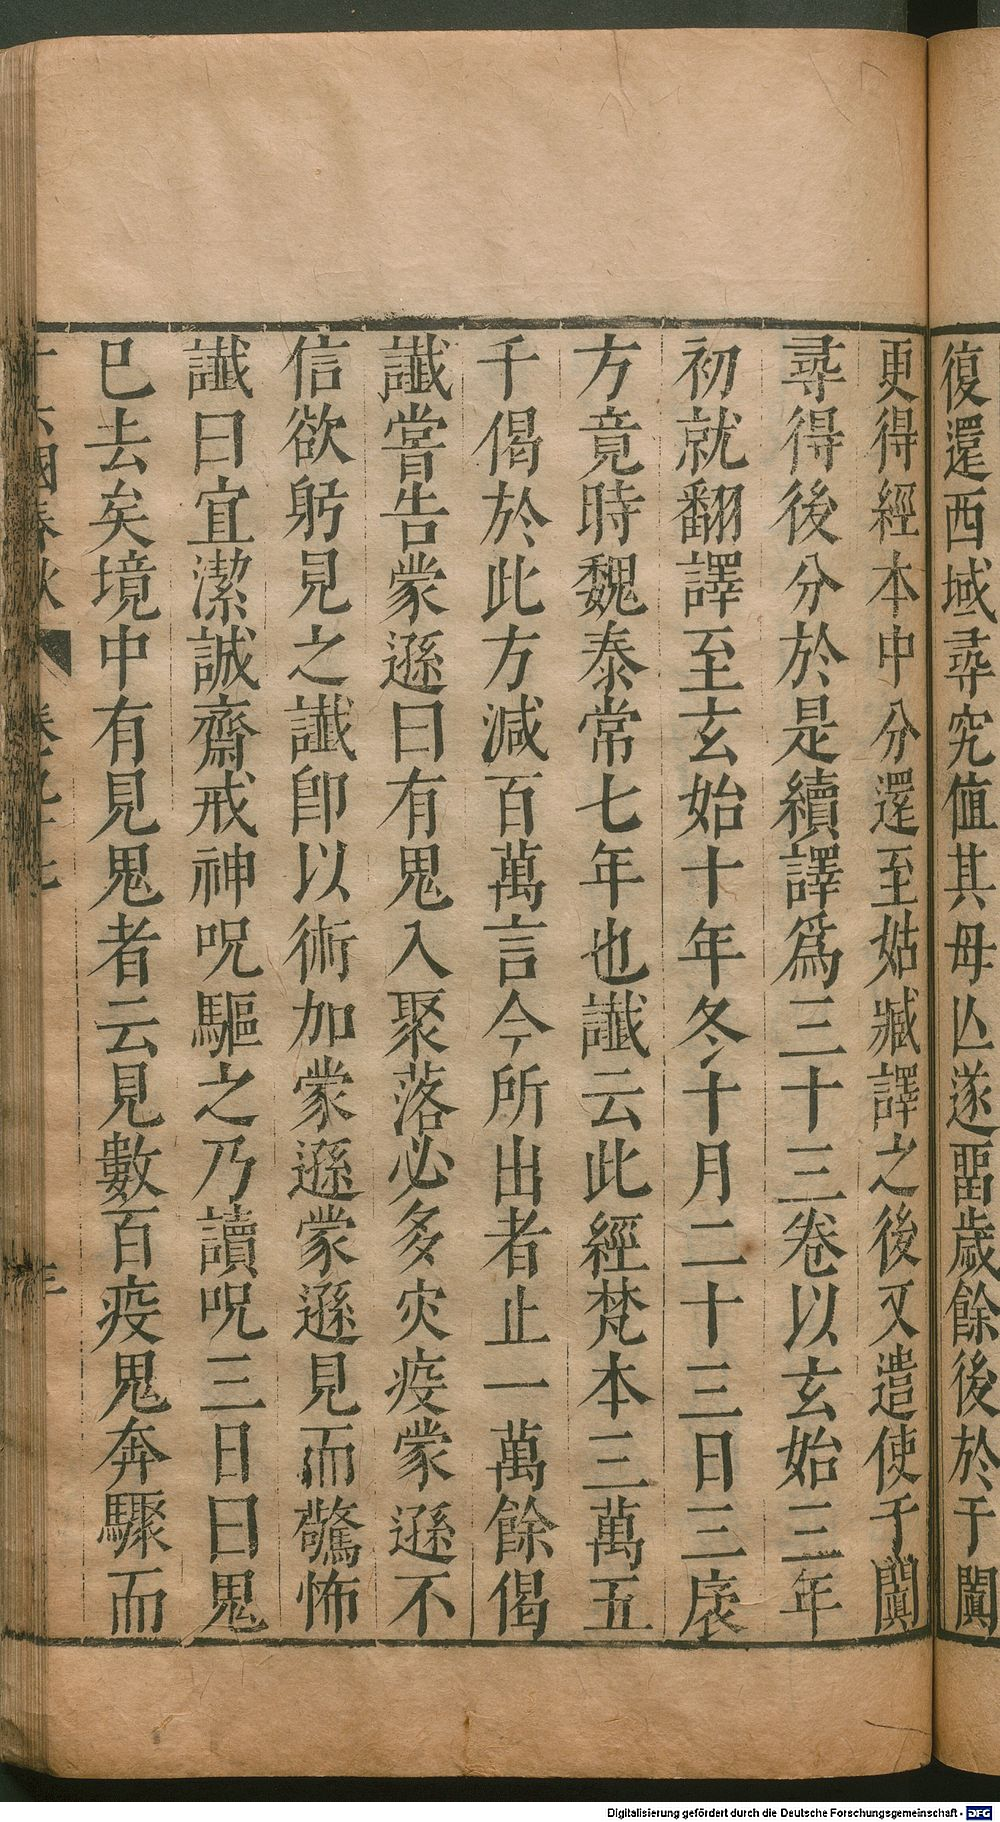 復還西域尋究值其母亾遂畱歲餘後於于闐
更得經本中分還至姑臧譯之後又遣使于闐
尋得後分於是續譯爲三十三卷以玄始三年
初就翻譯至玄始十年冬十月二十三日三袠
方竟時魏泰常七年也讖云此經梵本三萬五
千偈於此方減百萬言今所出者止一萬餘偈
讖嘗告蒙遜曰有鬼入聚落必多灾疫蒙遜不
信欲躬見之讖卽以術加蒙遜蒙遜見而驚怖
讖曰宜潔誠齋戒神呪驅之乃讀呪三日曰鬼
巳去矣境中有見鬼者云見數百疫鬼奔驟而
十六國春秋
Digitalisierung gefördert durch die Deutsche Forschungsgemeinschaft - DFG